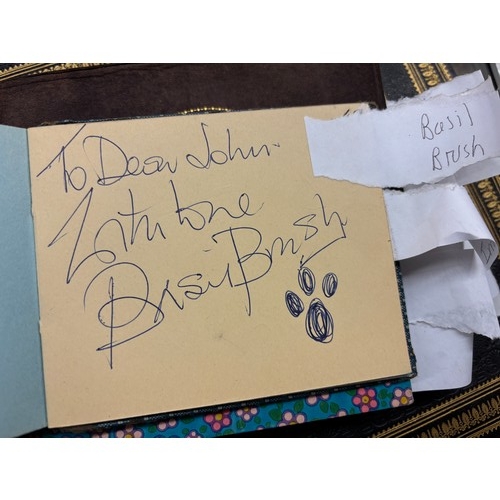 To Dear John -
With love
Basil Brush
Basil
Brush